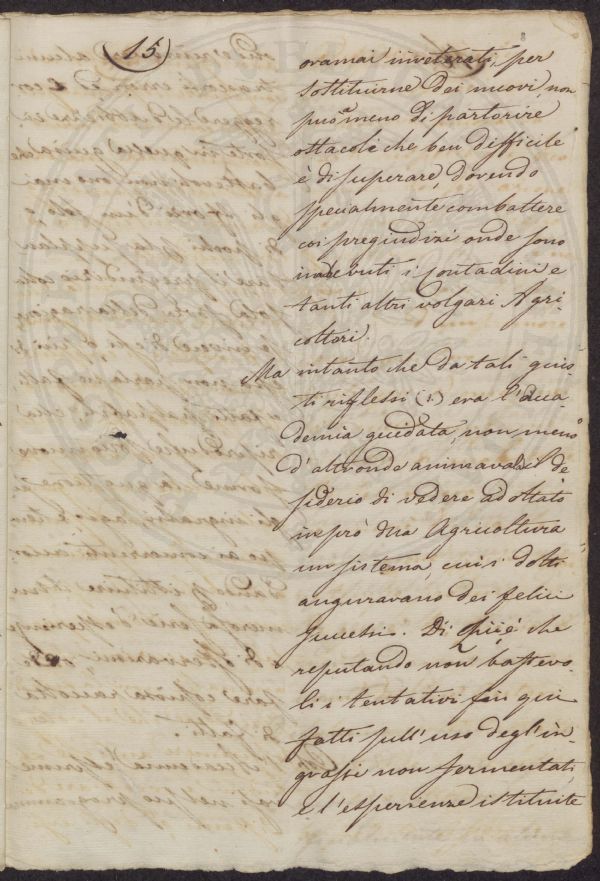 (15)
oramai inveterati, per
sostituirne dei nuovi, non
può meno di partorire
ostacoli che ben difficile
è di superare, dovendo
specialmente combattere
coi pregiudizi onde sono
imbevuti i contadini e
tanti altri volgari Agri-
coltori.
Ma intanto che da tali giusti-
ti riflessi (1) era l'Acca-
demia guidata, non meno
d'altronde animavala il de
siderio di vedere adottato
in prò dell'Agricoltura
un sistema, cui i dotti
auguravano dei felici
successi. Di qui è che
reputando non bastevo-
li i tentativi fin qui
fatti sull'uso degl'in-
grassi non fermentati,
e l'esperienze istituite